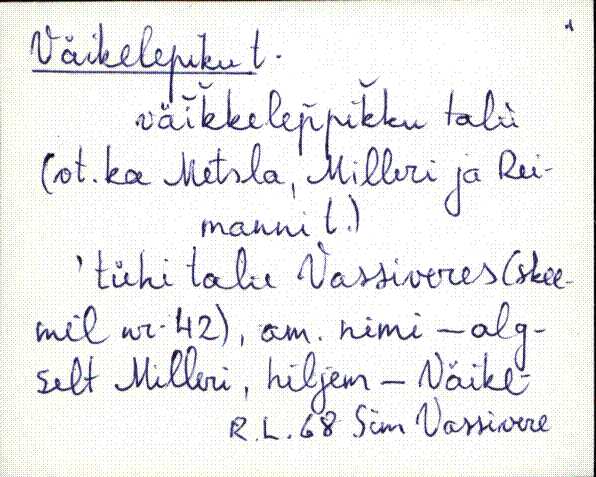 Väikelepiku t.
väi̮k̆kelep̆pik̆ku talu
(vt. ka Metsla, Milleri ja Rei-
manni t.)
'tühi talu Vassiveres (skee-
mil nr. 42), am. nimi – alg-
selt Milleri, hiljem – Väike-
R.L. 68 Sim Vassivere